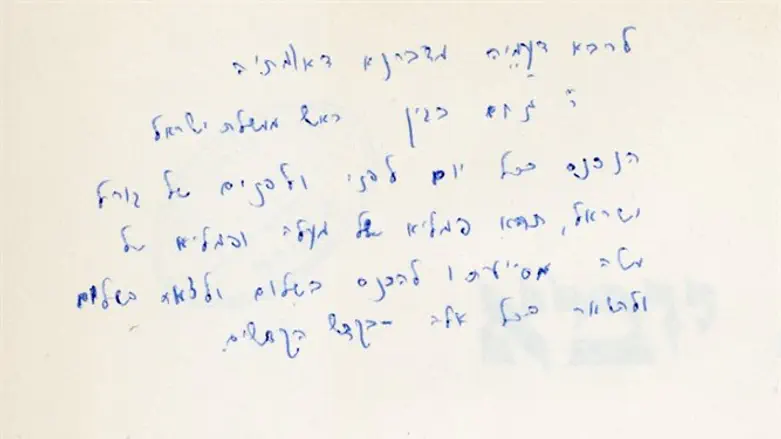 לרבא דעמיה מדברנא דאומתיה
ר' מנחם בגין ראש ממשלת ישראל
הנכנס בכל יום לפני ולפנים של גורל
ישראל, תהא פמליא של מעלה ופמליא של
מטה מסייעתו להכנס בשלום ולצאת בשלום
ולהשאר בכל אלה - בקדש הקדשים.